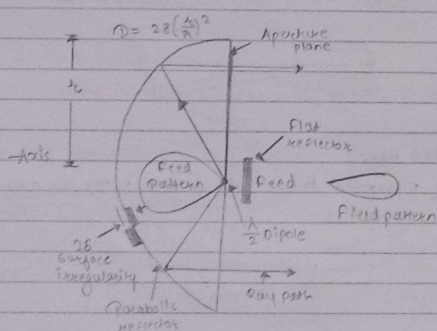 D = 28(r/λ)²
Aperture
plane
r
Flat
reflector
Axis
Feed
pattern
Feed
Field pattern
λ/2 Dipole
2δ
Surface
irregularity
Parabolic
reflector
Ray path